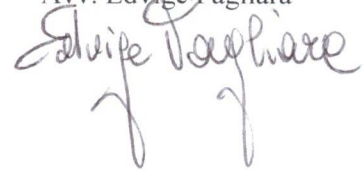 Avv. Edvige Pagliara
Edvige Pagliara